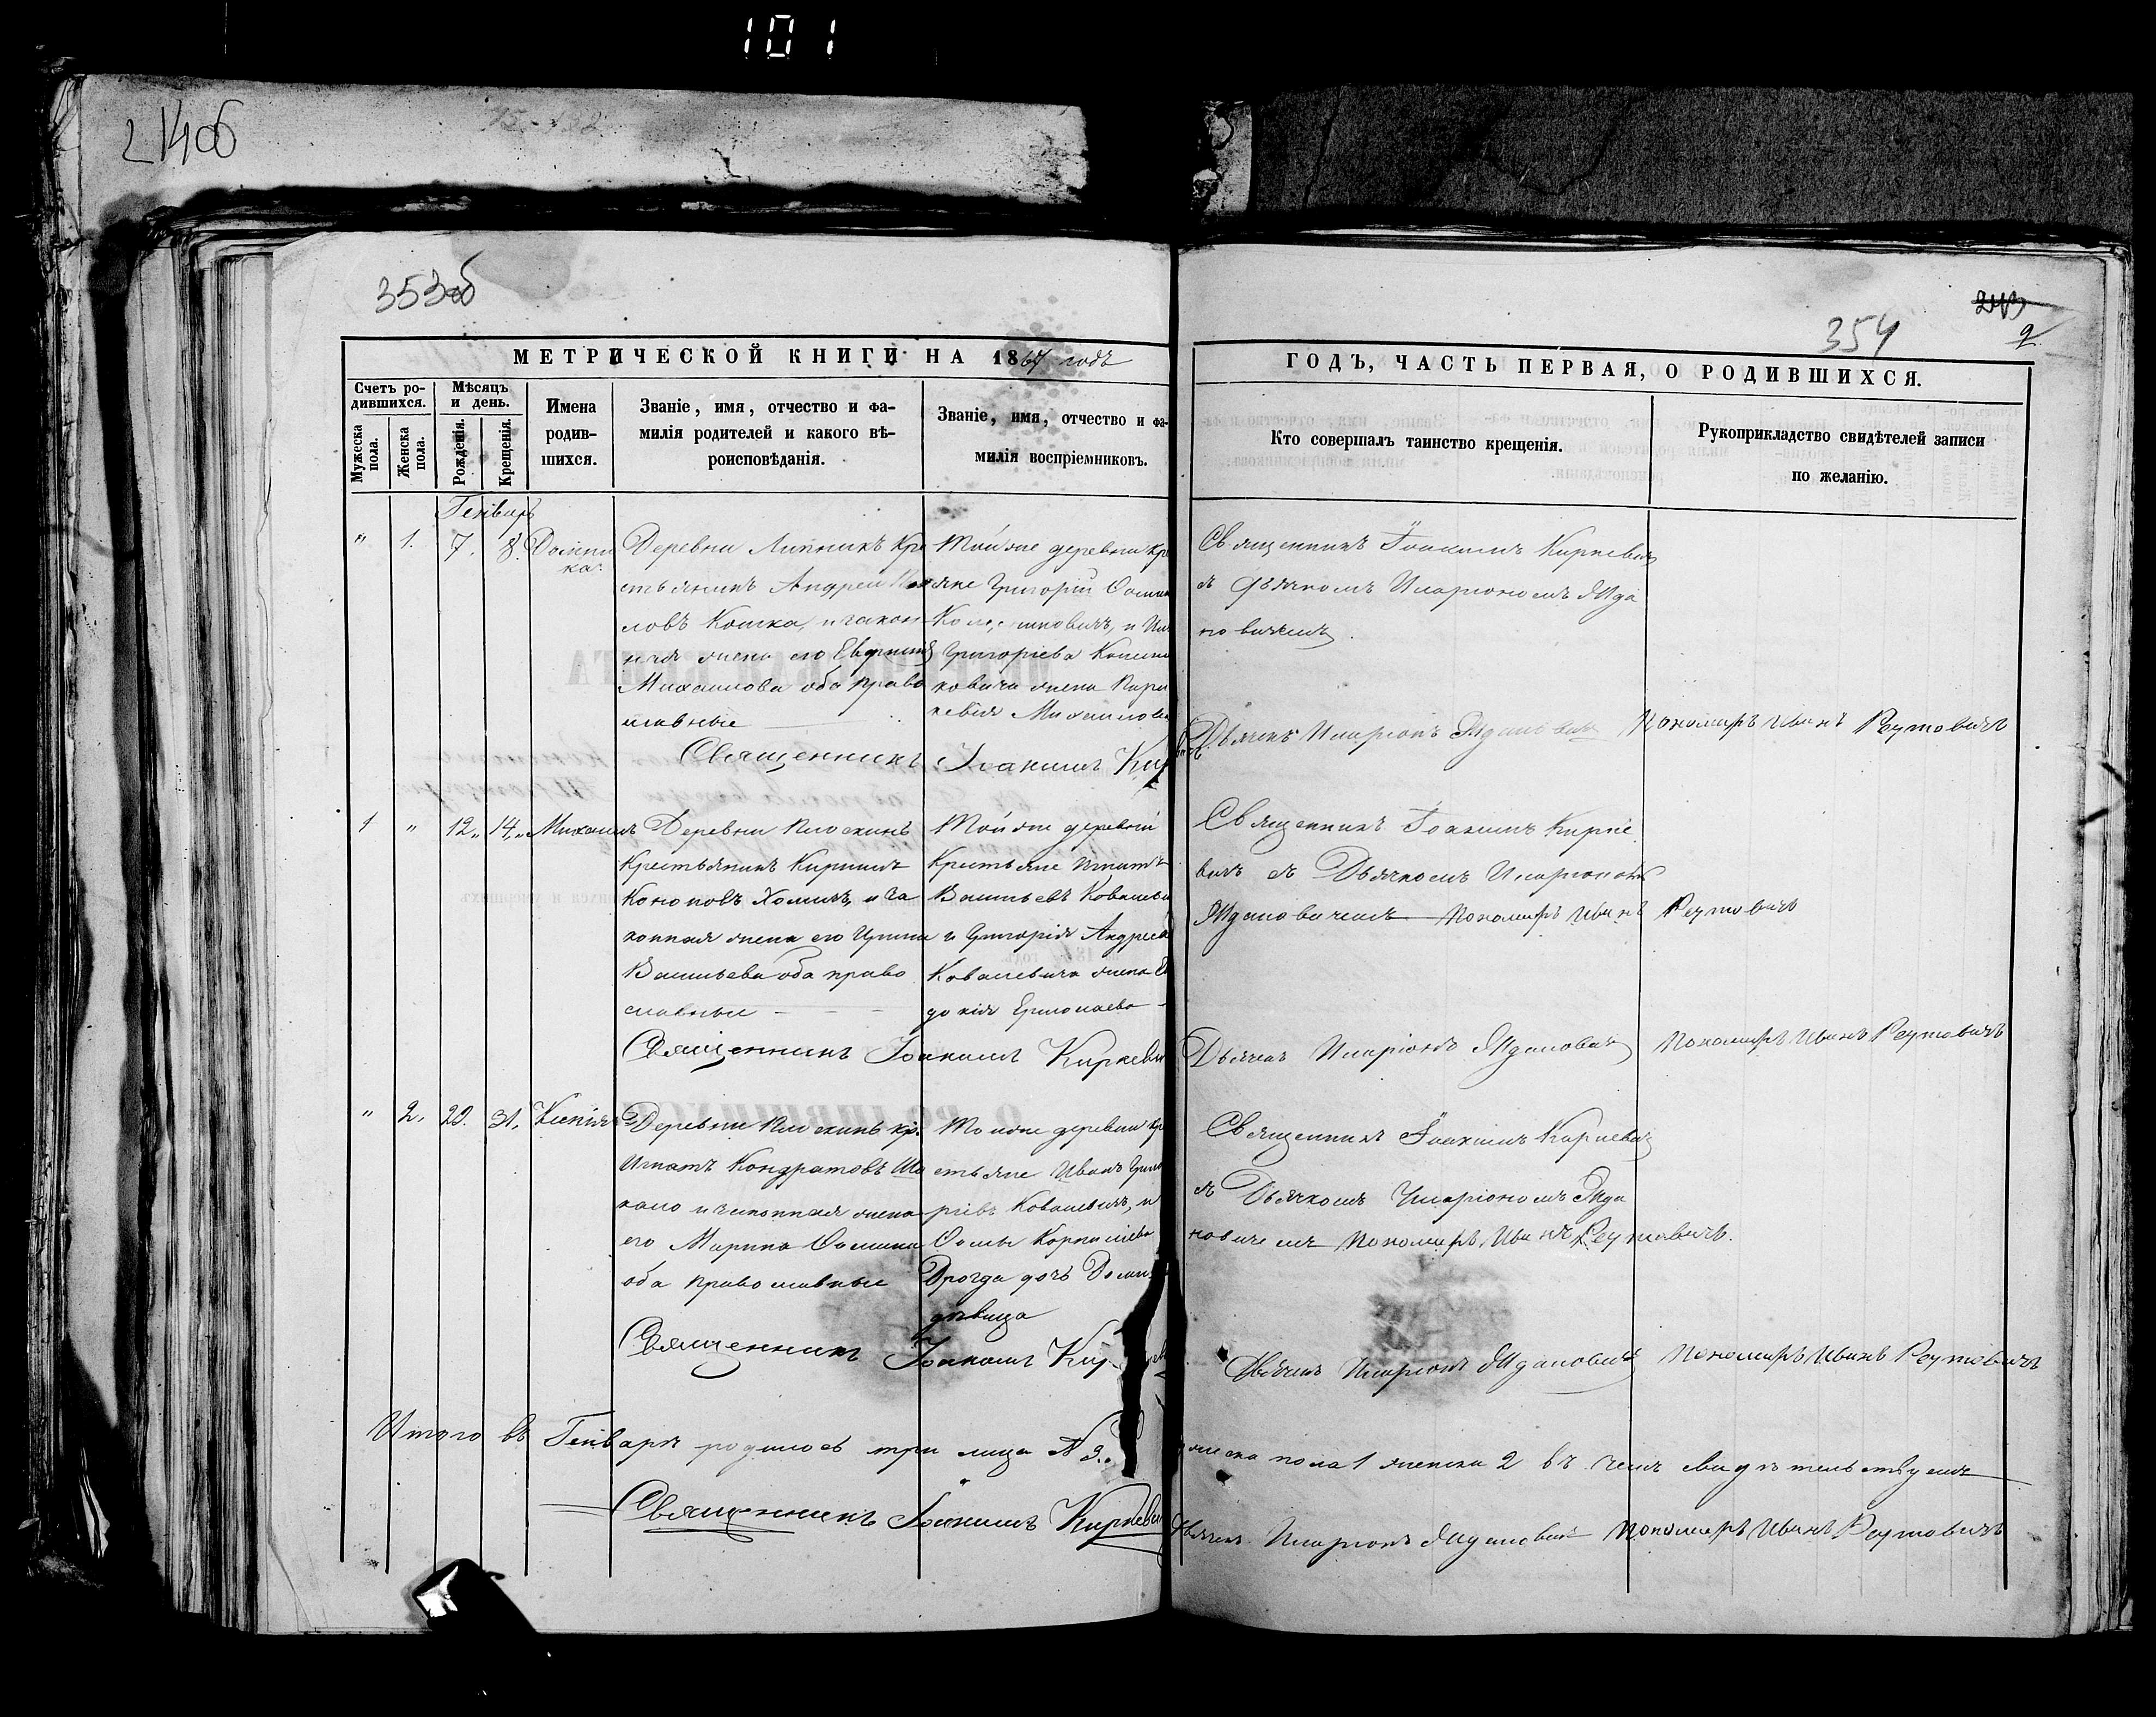 101
214об
353об
354
МЕТРИЧЕСКОЙ КНИГИ НА 1867 годъ
ГОДЪ, ЧАСТЬ ПЕРВАЯ, О РОДИВШИХСЯ.
Счетъ родившихся.
Мужеска пола.
Женска пола.
Мѣсяцъ и день.
Рожденія.
Крещенія.
Имена родившихся.
Званіе, имя, отчество и фамилія родителей и какого вѣроисповѣданія.
Званіе, имя, отчество и фамилія воспріемниковъ.
Кто совершалъ таинство крещенія.
Рукоприкладство свидѣтелей записи по желанію.
Генварь
" 1. 7. 8. Домни
ка
Деревни Липникъ Кре
стьянинъ Андрей
ловъ Кошка, и закон
ная жена его
Михаилова оба право
славные
Той же деревни кре
яне Григорій
Григоріева
ковича жена
Михаилова
Священникъ Іоакимъ Киркевичъ
съ Дьячкомъ Иларіономъ Жда
новичемъ.
Священникъ Іоакимъ Кир
Дьячекъ Иларіонъ Ждановичъ Пономарь Иванъ Реутовичъ
1 " 12„ 14„ Михаилъ
Деревни Плоскинь
Крестьянинъ Кириллъ
Кононовъ Хомичъ, и за
конная жена его Ирина
Васильева оба право
славные
Той же деревни
Крестьяне Игнатъ
Васильевъ Ковалеви
и Григорія Андреева
Ковалевича жена Ев
докія Ермолаева
Священникъ Іоакимъ Кирке
вичъ съ Дьячкомъ Иларіономъ
Ждановичемъ Пономарь Иванъ Реутовичъ
Священникъ Іоакимъ Киркевич
Дьячекъ Иларіонъ Ждановичъ Пономарь Иванъ Реутовичъ
" 2. 29. 31. Ксенія
Деревни Плоскинь кр.
Игнатъ Кондратовъ Ша
кало и законная жена
его Марина
оба православные
Той же деревни кре
стьяне Иванъ Григо
ріевъ Ковалевичъ, и
Фомы Корниліева
Дрогда дочь
дѣвица
Священникъ Іоакимъ Киркевичъ
съ Дьячкомъ Иларіономъ Жда
новичемъ Пономарь Иванъ Реутовичъ.
Священникъ Іоакимъ Кир
Дьячекъ Иларіонъ Ждановичъ Пономарь Иванъ Реутовичъ
Итого въ Генварѣ родилось три лица N 3. мужеска пола 1 женска 2 въ чемъ свидѣтельствуемъ
Священникъ Іоакимъ Киркевич
Дьячекъ Иларіонъ Ждановичъ Пономарь Иванъ Реутовичъ